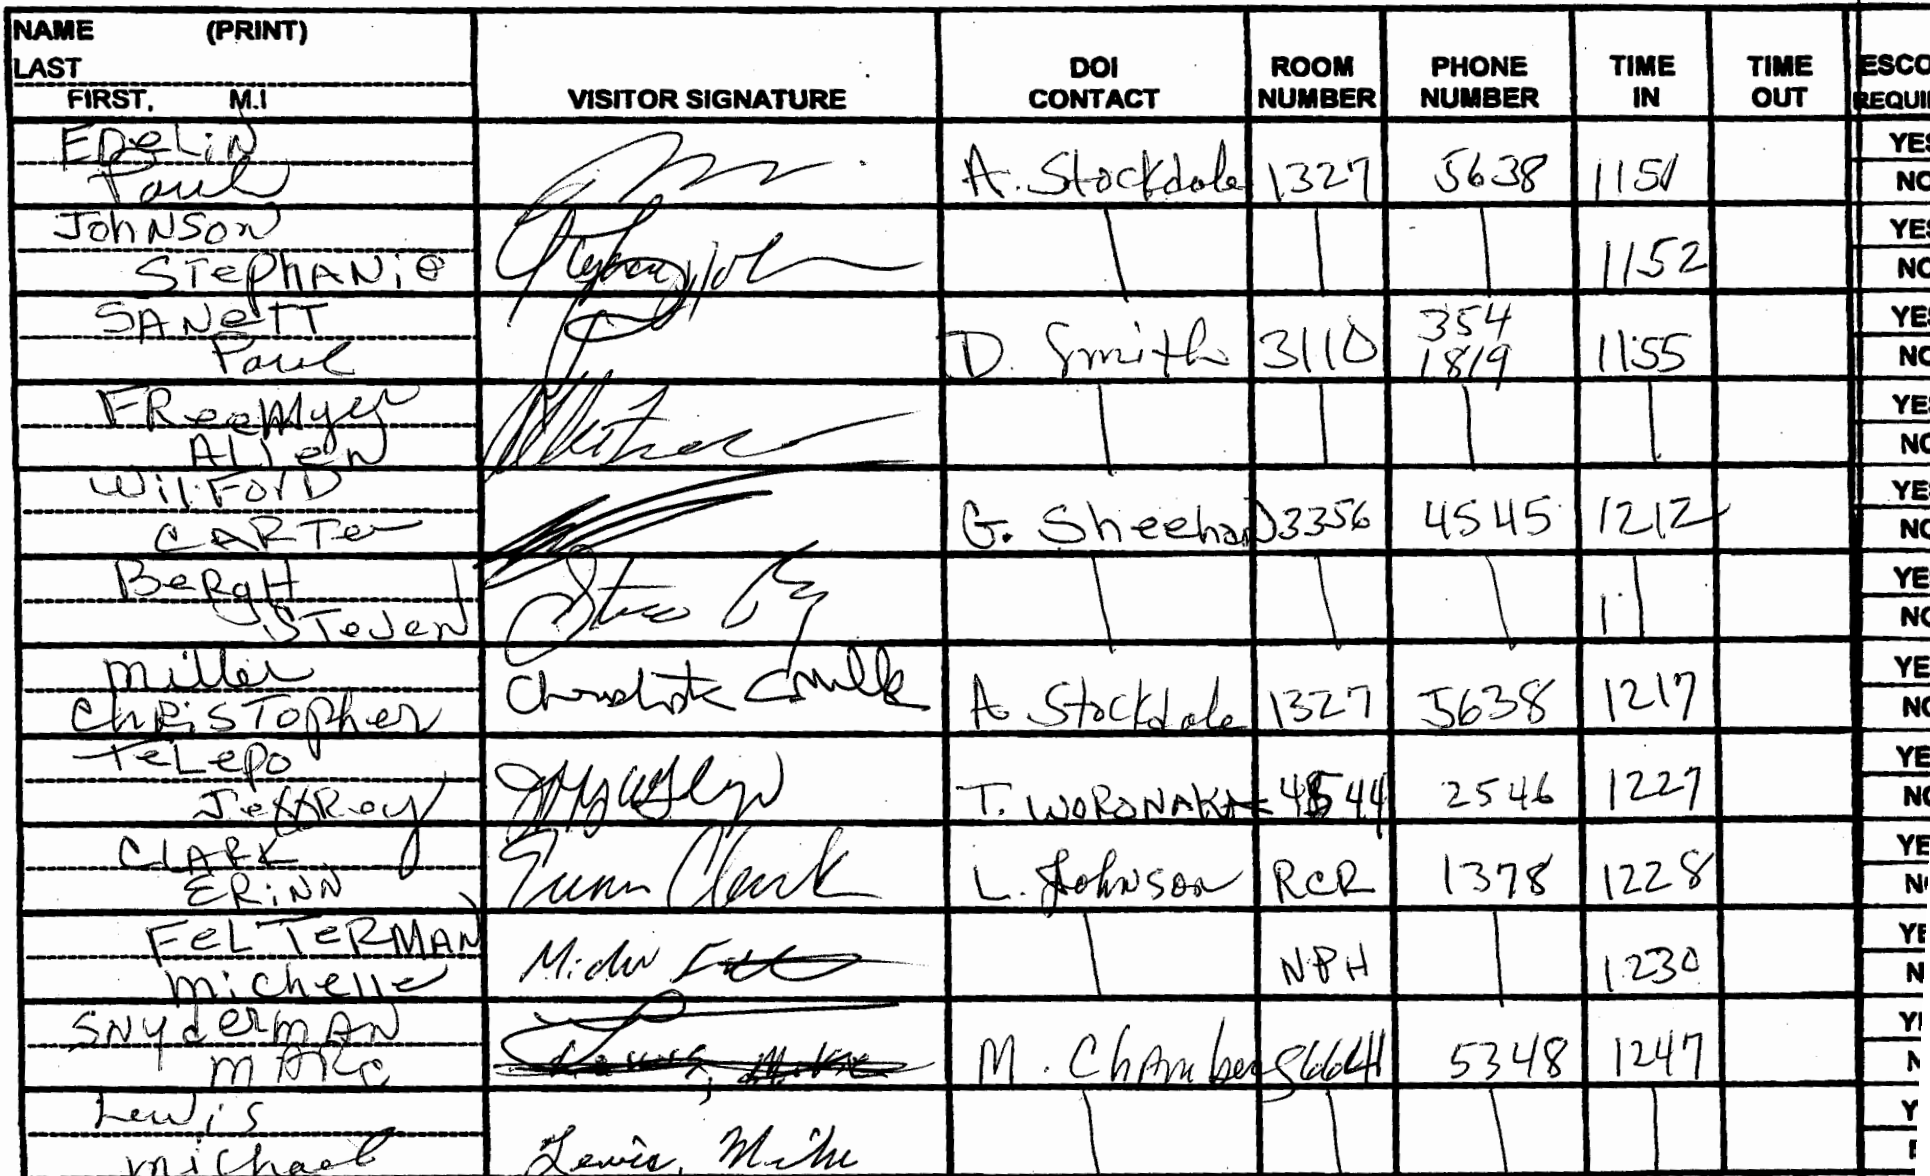 NAME (PRINT)
LAST
FIRST, M.I
VISITOR SIGNATURE
DOI CONTACT
ROOM NUMBER
PHONE NUMBER
TIME IN
TIME OUT
ESCO
REQUI
EDeLiN
Paul
A. Stockdale 1327 5638 1151
YES
NO
JohNSoN
STePhANie
1152
YES
NO
SANeTT
Paul
D. Smith 3110 354 1819 1155
YES
NO
FReeMyer
Allen
YES
NO
WilForD
CARTer
G. Sheehan 3356 4545 1212
YES
NO
BeRgH
STeven
Steve
YE
NO
Miller
ChRiSTopher
A. Stockdale 1327 5638 1217
YE
NO
TeLepo
JeffRey
T. WORONAKA 2546 1227
YE
NO
CLARK
ERiNN
Erinn Clark
L. JohNSon RCR 1378 1228
YE
N
FeLTeRMAN
Michelle
NPH 1230
YE
N
SNyderMAN
MARc
Lewis, Mike
M. Chambers 6641 5348 1247
Y
N
Lewis
Michael
Lewis, Mike
Y